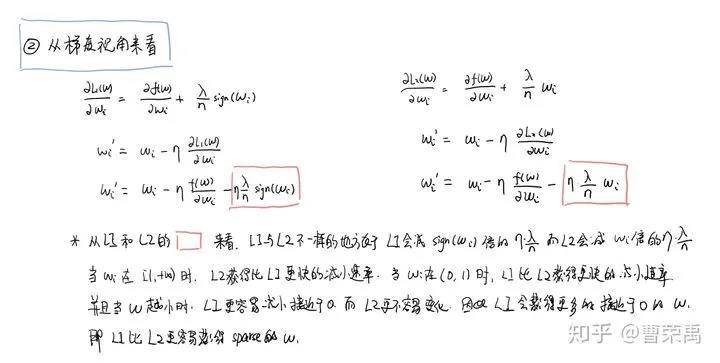 ② 从梯度视角来看
∂L₁(w)/∂wᵢ = ∂f(w)/∂wᵢ + λ/n sign(wᵢ)
∂L₂(w)/∂wᵢ = ∂f(w)/∂wᵢ + λ/n wᵢ
wᵢ' = wᵢ - η ∂L₁(w)/∂wᵢ
wᵢ' = wᵢ - η ∂L₂(w)/∂wᵢ
wᵢ' = wᵢ - η f(w)/∂wᵢ - η λ/n sign(wᵢ)
wᵢ' = wᵢ - η f(w)/∂wᵢ - η λ/n wᵢ
* 从L1和L2的 来看, L1与L2不一样的地方在于 L1会减 sign(wᵢ) 倍的 η·λ/n 而L2会减 wᵢ倍的 η·λ/n
当 wᵢ 在 (1,+∞) 时, L2获得比L1更快的减小速率. 当 wᵢ 在 (0, 1) 时, L1比L2获得更快的减小速率
并且当 w 越小时, L1更容易减小接近于0. 而L2更不容易变化. 因此L1会获得更多的接近于0的 w.
即 L1比L2更容易获得 sparse的 w.
知乎 @曹荣禹